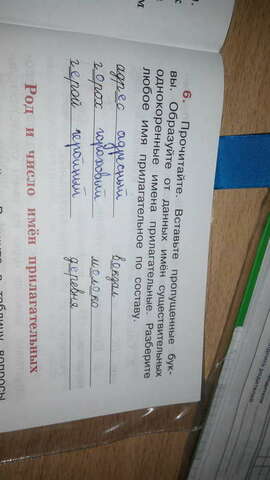 6. Прочитайте. Вставьте пропущенные бук-
вы. Образуйте от данных имён существительных
однокоренные имена прилагательные. Разберите
любое имя прилагательное по составу.
адрес адресный вокзал
горох гороховый молоко
герой геройный деревня
Род и число имён прилагательных
в таблицу вопросы